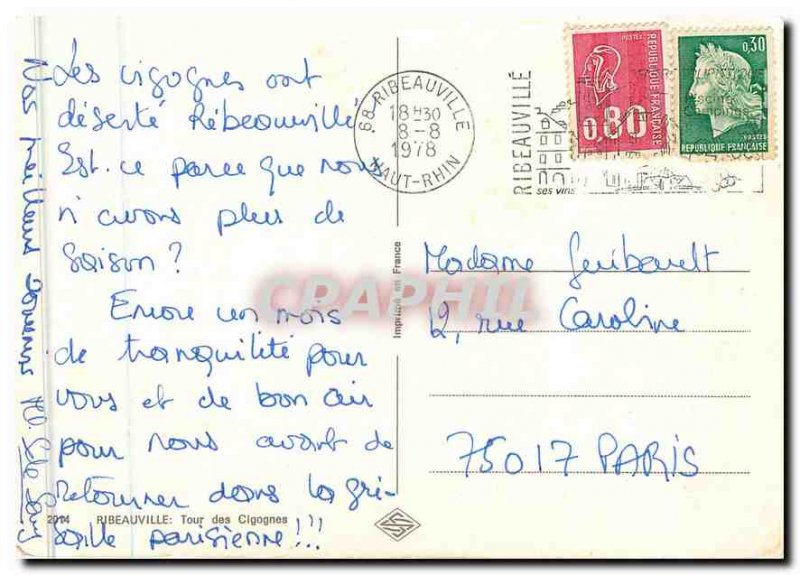 Les cigognes ont
déserté Ribeauvillé
Est-ce parce que nous
n'avons plus de
saison ?
Encore un mois
de tranquilité pour
vous et de bon air
pour nous avant de
retourner dans la gri-
saille parisienne !!!
Nos meilleurs souvenirs
68 RIBEAUVILLE
18 H 30
8-8
1978
HAUT-RHIN
RIBEAUVILLÉ
ses vins
POSTES
0.80
REPUBLIQUE FRANÇAISE
0,30
POSTES
REPUBLIQUE FRANÇAISE
Madame Guibault
12, rue Caroline
75017 PARIS
Imprimé en France
2014 RIBEAUVILLE: Tour des Cigognes
CPAPHIL